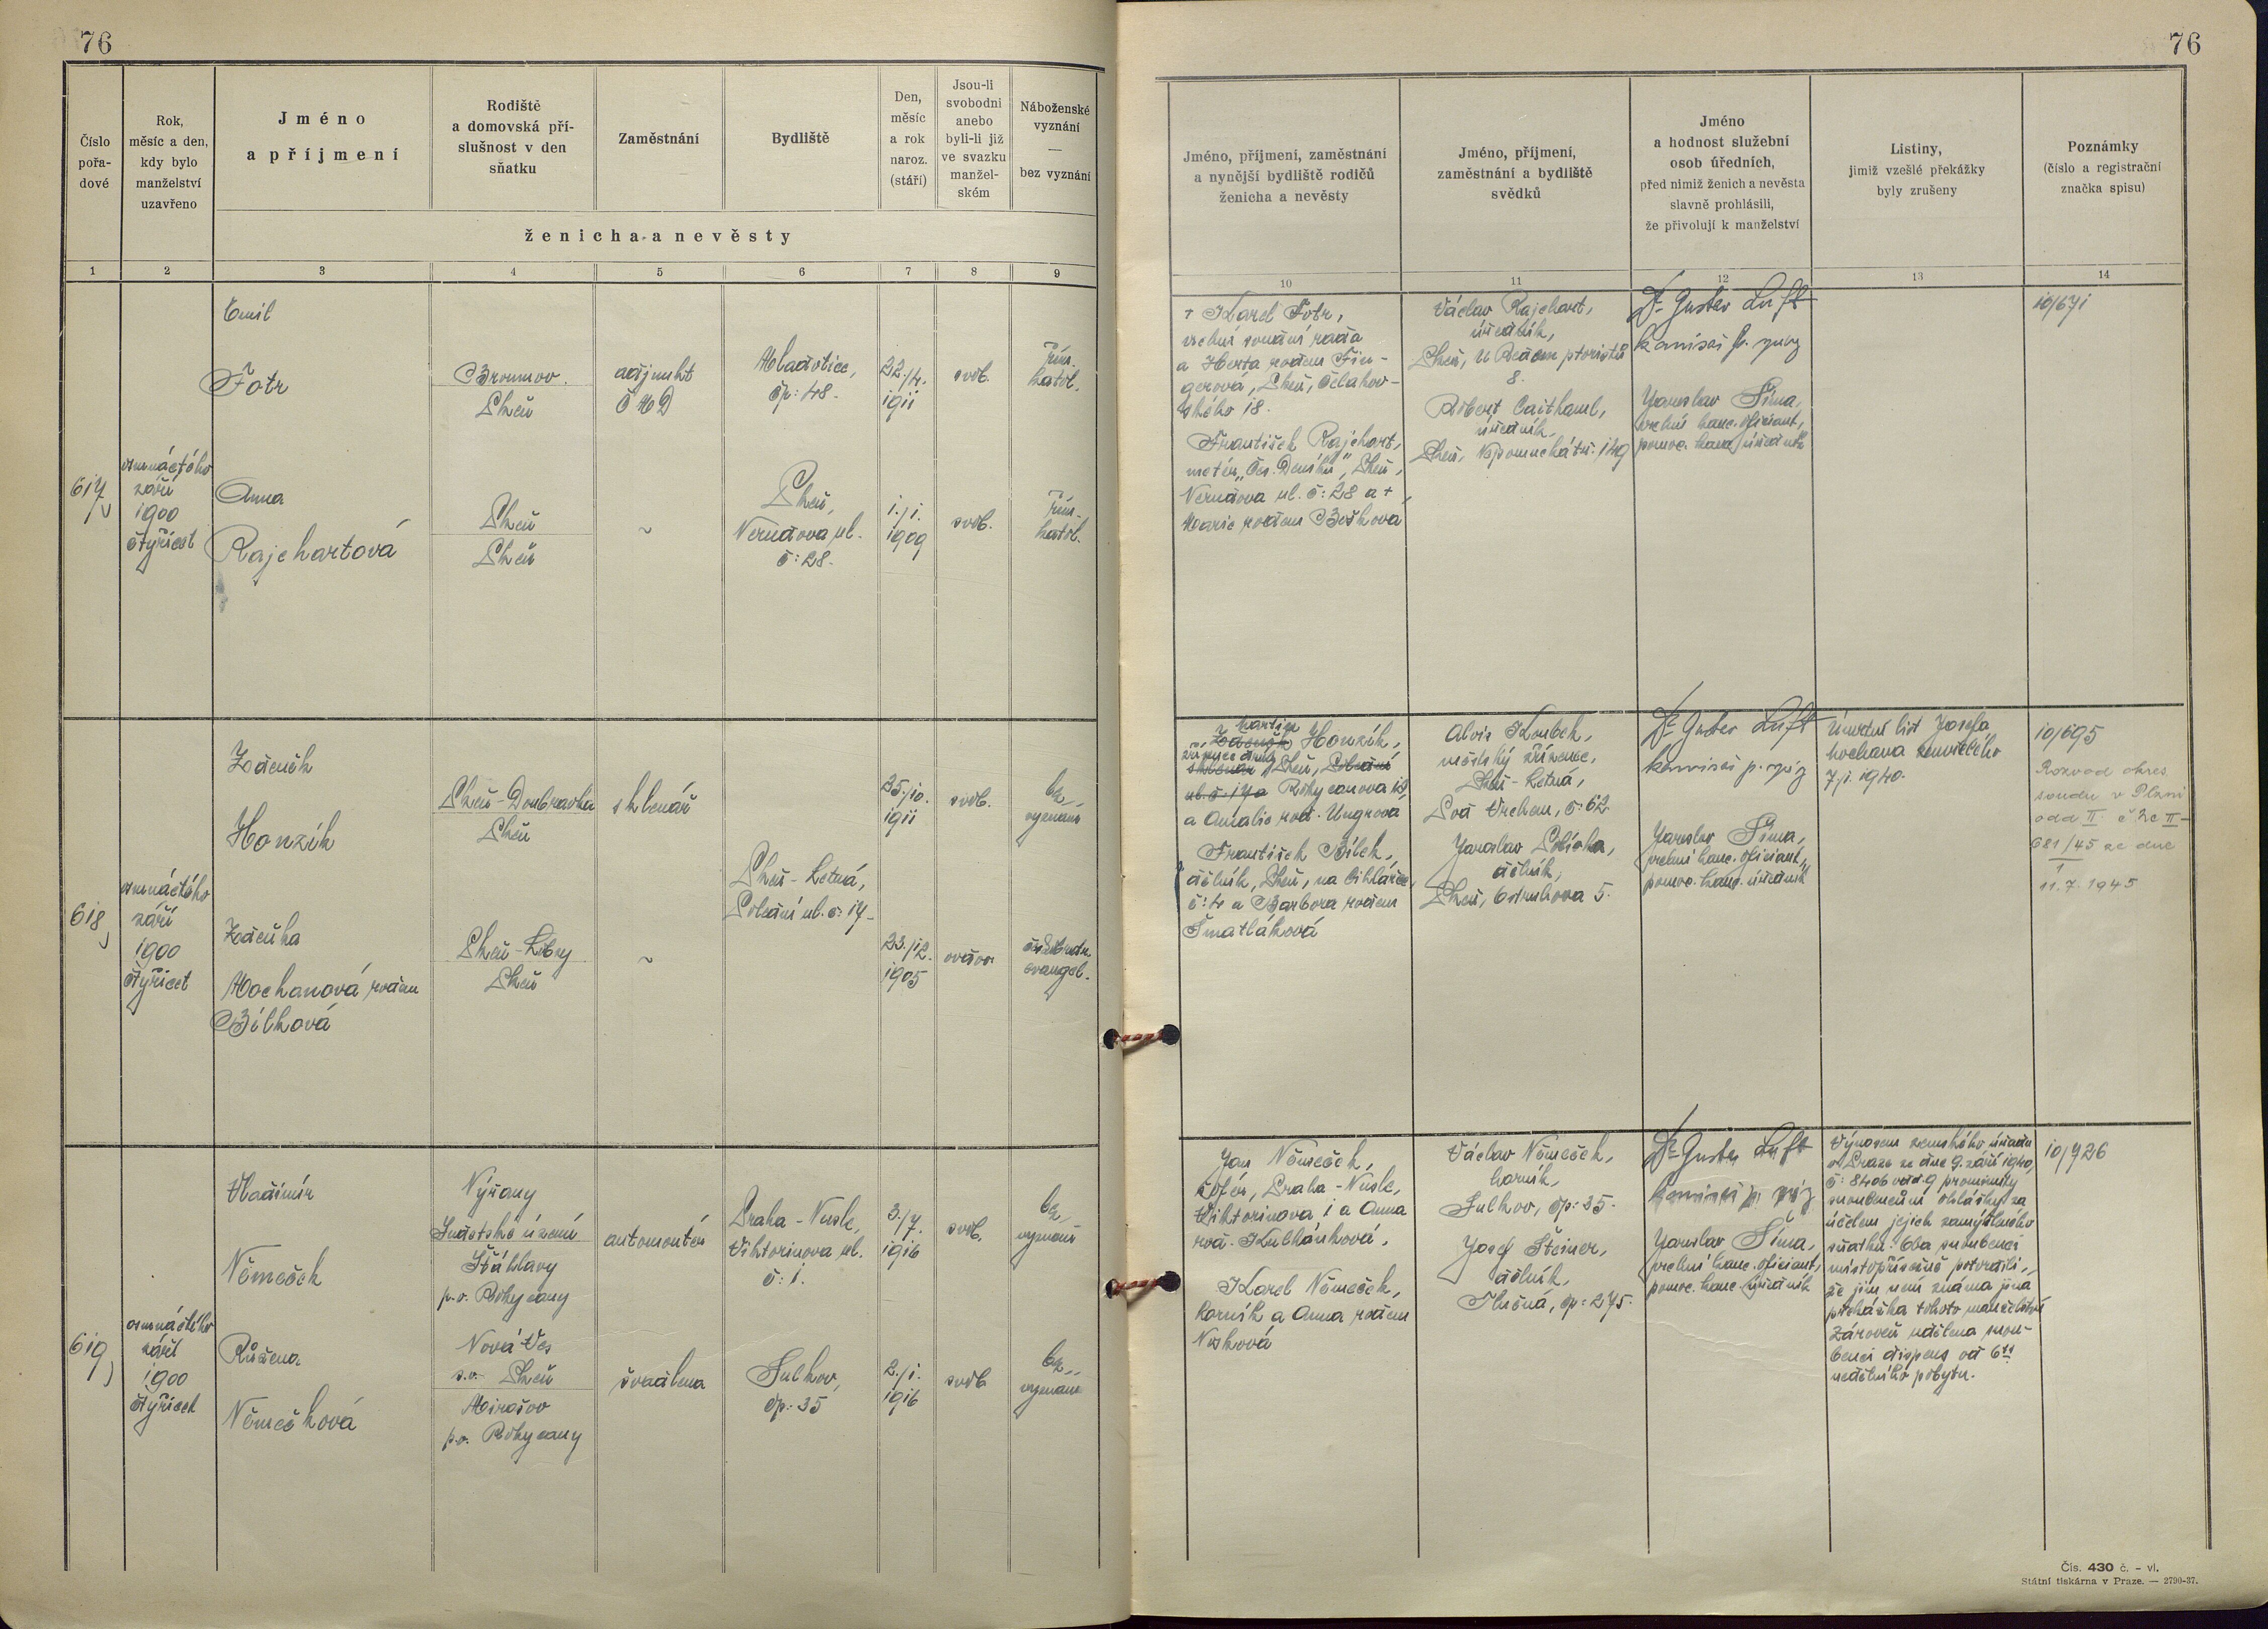 76
76
Číslo pořa-dové
Rok, měsíc a den, kdy bylo manželství uzavřeno
Jméno a příjmení
Rodiště a domovská pří-slušnost v den sňatku
Zaměstnání
Bydliště
Den, měsíc a rok naroz. (stáří)
Jsou-li svobodni anebo byli-li již ve svazku manžel-ském
Náboženské vyznání — bez vyznání
ženicha a nevěsty
Jméno, příjmení, zaměstnání a nynější bydliště rodičů ženicha a nevěsty
Jméno, příjmení, zaměstnání a bydliště svědků
Jméno a hodnost služební osob úředních, před nimiž ženich a nevěsta slavně prohlásili, že přivolují k manželství
Listiny, jimiž vzešlé překážky byly zrušeny
Poznámky (číslo a registrační značka spisu)
1 2 3 4 5 6 7 8 9
10 11 12 13 14
617
osmnáctého
září
1900
čtyřicet
Emil
Fotr
Broumov
Plzeň
adjunkt
ČMD
Mladotice,
čp: 48.
22./4.
1911
svob.
řím.
katol.
Anna
Rajchartová
Plzeň
Plzeň
~
Plzeň,
Nerudova ul.
č: 28.
1./1.
1909
svob.
řím.
katol.
+ Karel Fotr,
vrchní soudní rada
a Herta rodem Fin-
gerová, Plzeň, Čelakov-
ského 18.
František Rajchart,
metér „Čes. Deníku", Plzeň,
Nerudova ul. č: 28 a +
Marie rodem Bošková
Václav Rajchart,
úředník,
Plzeň, U Redemptoristů
8.
Robert Caithaml,
úředník,
Plzeň, Nepomucká tř: 149
Dr Gustav Luft
Jaroslav Šíma,
vrchní kanc. oficiant,
pomoc. kanc. úředník
10/671
618
osmnáctého
září
1900
čtyřicet
Zdeněk
Honzík
Plzeň-Doubravka
Plzeň
sklenář
25./10.
1911
svob.
bez
vyznání
Plzeň-Letná,
Polední ul. č: 17
Zdeňka
Mochanová rodem
Bílková
Plzeň-Lobzy
Plzeň
~
23./12.
1905
vdova
českobratr.
evangel.
Martin
Zdeněk Honzík,
sklenář, Plzeň, Polední
ul. č. 17a Rokycanova 18,
a Amalie rod. Ungrová
František Bílek,
dělník, Plzeň, na Cikhárce,
č: 4 a Barbora rodem
Šmatláková
Alois Koubek,
městský zřízenec,
Plzeň-Letná,
Pod Vrchem, č: 62
Jaroslav Soběha,
dělník,
Plzeň, Ostruhova 5.
Dr Gustav Luft
Jaroslav Šíma,
vrchní kanc. oficiant,
pomoc. kanc. úředník
Úmrtní list Josefa
Mochana zemřelého
7./1. 1940.
10/695
Rozvod okres.
soudu v Plzni
odd II. č Nc II-
681/45 ze dne
11.7.1945
619
osmnáctého
září
1900
čtyřicet
Vladimír
Němeček
Nýřany
Sudetské území
Šťáhlavy
p.o. Rokycany
automontér
Praha-Nusle,
Viktorinova ul.
č: 1.
3./7.
1916
svob.
bez
vyznání
Růžena
Němečková
Nová Ves
s.o. Plzeň
Mirošov
p.o. Rokycany
švadlena
Sulkov,
čp: 35
2./1.
1916
svob
bez
vyznání
Jan Němeček,
šofér, Praha-Nusle,
Viktorinova 1 a Anna
rod. Kulhánková,
Karel Němeček,
horník a Anna rodem
Nosková
Václav Němeček,
horník,
Sulkov, čp: 35.
Josef Steiner,
dělník,
Tlučná, čp: 275.
Dr Gustav Luft
Jaroslav Šíma,
vrchní kanc. oficiant,
pomoc. kanc. úředník
Výnosem zemského úřadu
v Praze ze dne 9. září 1940,
č: 8406 odd. 9 prominuty
snoubencům ohlášky za
účelem jejich zamýšleného
sňatku. Oba snoubenci
místopřísežně potvrdili,
že jim není známa jiná
překážka tohoto manželství
Zároveň udělena snou-
benci dispens od 6ti
nedělního pobytu.
10/726
Čís. 430 č. - vl.
Státní tiskárna v Praze. — 2790-37.